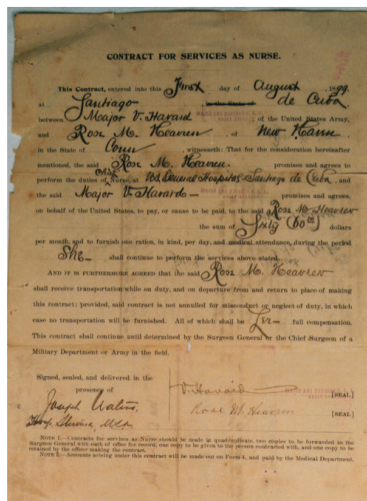 CONTRACT FOR SERVICES AS NURSE.
This Contract, entered into this First day of August, 1899,
at Santiago de Cuba
between Major V. Havard, of the United States Army,
and Rose M. Heavren, of New Haven
in the State of Conn, witnesseth: That for the consideration hereinafter
mentioned, the said Rose M. Heavren promises and agrees to
perform the duties of Nurse, at Hospital Santiago de Cuba, and
the said Major V. Havard promises and agrees,
on behalf of the United States, to pay, or cause to be paid, to the said Rose M. Heavren
the sum of Sixty (60) dollars
per month and to furnish one ration, in kind, per day, and medical attendance, during the period
She shall continue to perform the services above stated.
AND IT IS FURTHERMORE AGREED that the said Rose M. Heavren
shall receive transportation while on duty, and on departure from and return to place of making
this contract; provided, said contract is not annulled for misconduct or neglect of duty, in which
case no transportation will be furnished. All of which shall be full compensation.
This contract shall continue until determined by the Surgeon General or the Chief Surgeon of a
Military Department or Army in the field.
Signed, sealed, and delivered in the
presence of
V. Havard [SEAL]
Joseph
Rose M. Heavren [SEAL]
Hosp. Steward, U.S.A.
NOTE 1.—Contracts for services as Nurse should be made in quadruplicate, two copies to be forwarded to the
Surgeon General with oath of office for record, one copy to be given to the person contracted with, and one copy to be
retained by the officer making the contract.
NOTE 2.—Accounts arising under this contract will be made out on Form 4, and paid by the Medical Department.